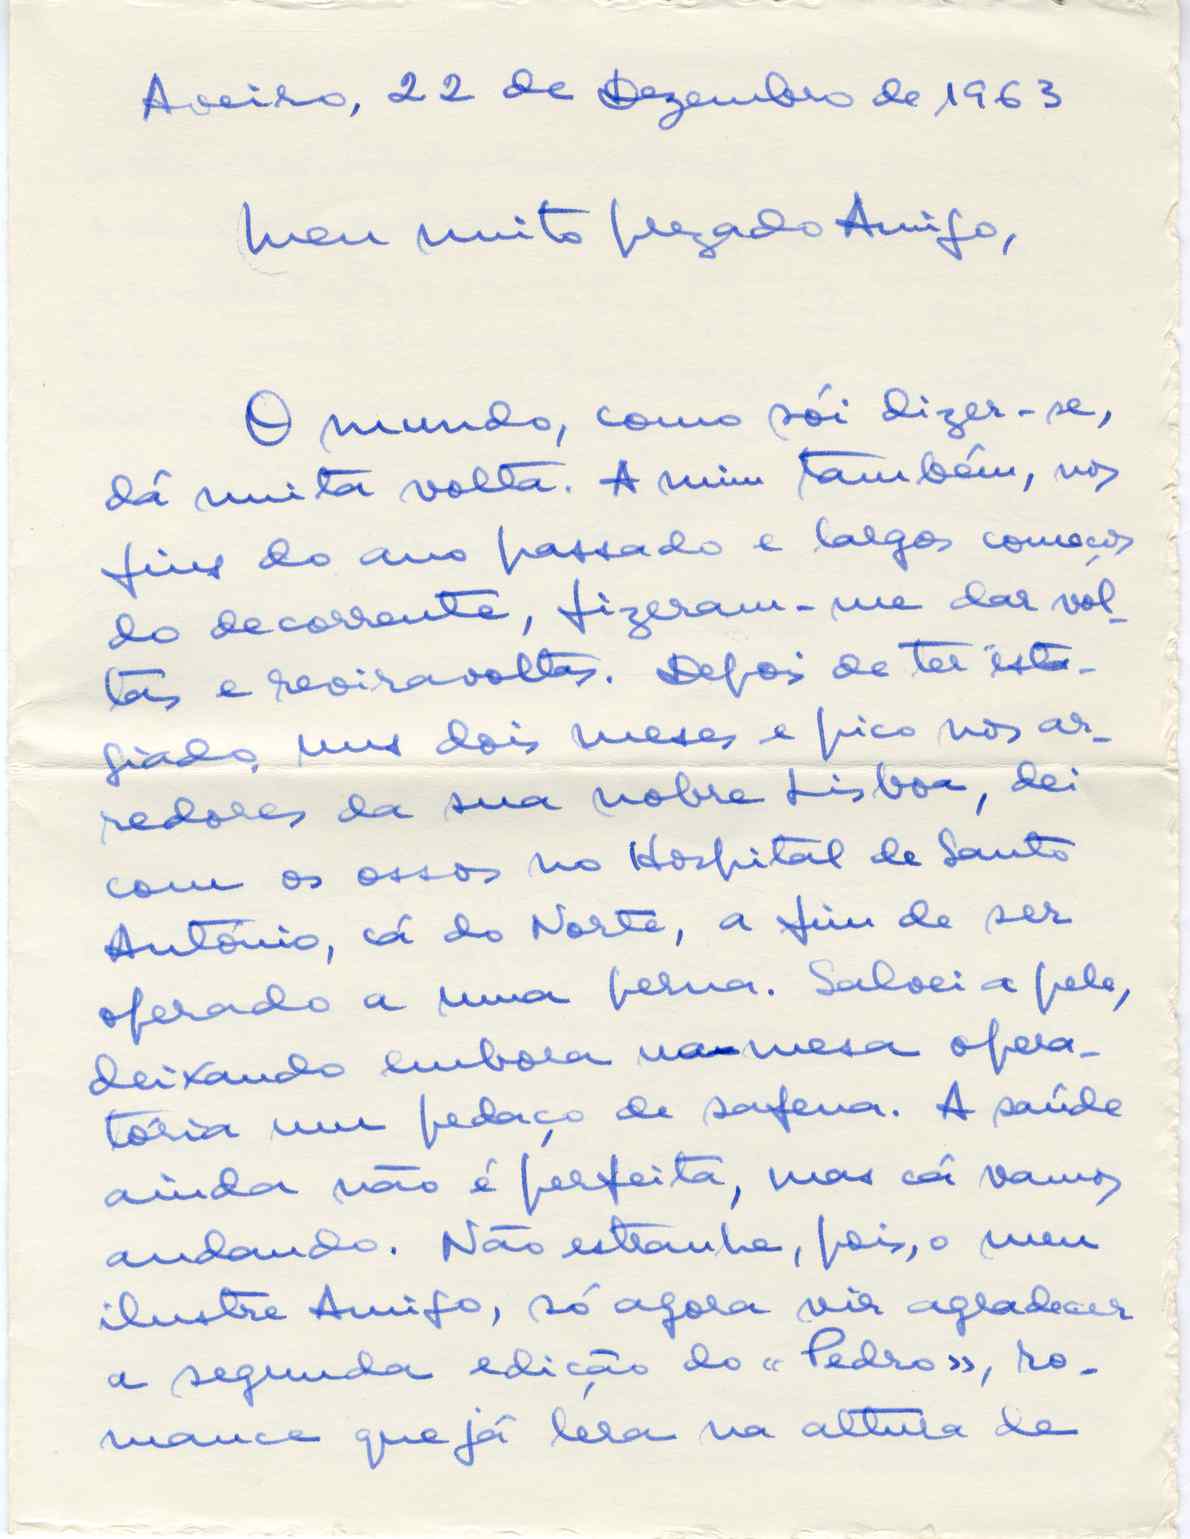 Aveiro, 22 de Dezembro de 1963
Meu muito prezado Amigo,
O mundo, como sói dizer-se,
dá muita volta. A mim também, nos
fins do ano passado e largos começos
do decorrente, fizeram-me dar vol-
tas e reviravoltas. Depois de ter "esta-
giado" uns dois meses e pico nos ar-
redores da sua nobre Lisboa, dei
com os ossos no Hospital de Santo
António, cá do Norte, a fim de ser
operado a uma perna. Salvei a pele,
deixando embora na mesa opera-
tória um pedaço de safena. A saúde
ainda não é perfeita, mas cá vamos
andando. Não estranhe, pois, o meu
ilustre Amigo, só agora vir agradecer
a segunda edição do «Pedro», ro-
mance que já lera na altura de